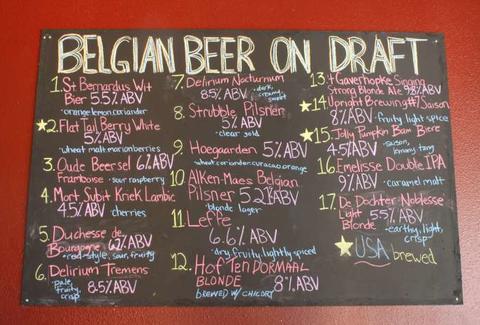 BELGIAN BEER ON DRAFT
1. St Bernardus Wit
Bier 5.5% ABV
•orange lemon coriander
★2. Flat Tail Berry White
5% ABV
•wheat malt marionberries
3. Oude Beersel 6% ABV
Framboise •sour raspberry
4. Mort Subit Kriek Lambic
4.5% ABV •cherries
5. Duchesse de
Bourgogne 6.2% ABV
•red-style, sour, fruity
6. Delirium Tremens
•pale, fruity, crisp 8.5% ABV
7. Delirium Nocturnum
8.5% ABV •dark, creamy, sweet
8. Strubble Pilsner
5% ABV
•clear gold
9. Hoegaarden 5% ABV
•wheat, coriander, curacao orange
10. Alken-Maes Belgian
Pilsner 5.2% ABV
•blonde lager
11. Leffe
6.6% ABV
•dry, fruity, lightly spiced
12. Hof Ten DORMAAL
BLONDE 8% ABV
BREWED W/ CHICORY
13. 't Gaverhopke Singing
Strong Blonde Ale 9.8% ABV
★14. Upright Brewing #7 Saison
8% ABV •fruity light spice
★15. Jolly Pumpkin Bam Biere
4.5% ABV •saison, lemony tang
16. Emelisse Double IPA
9% ABV •caramel malt
17. De Dochter Noblesse
Light 5.5% ABV
Blonde •earthy, light, crisp
★USA brewed